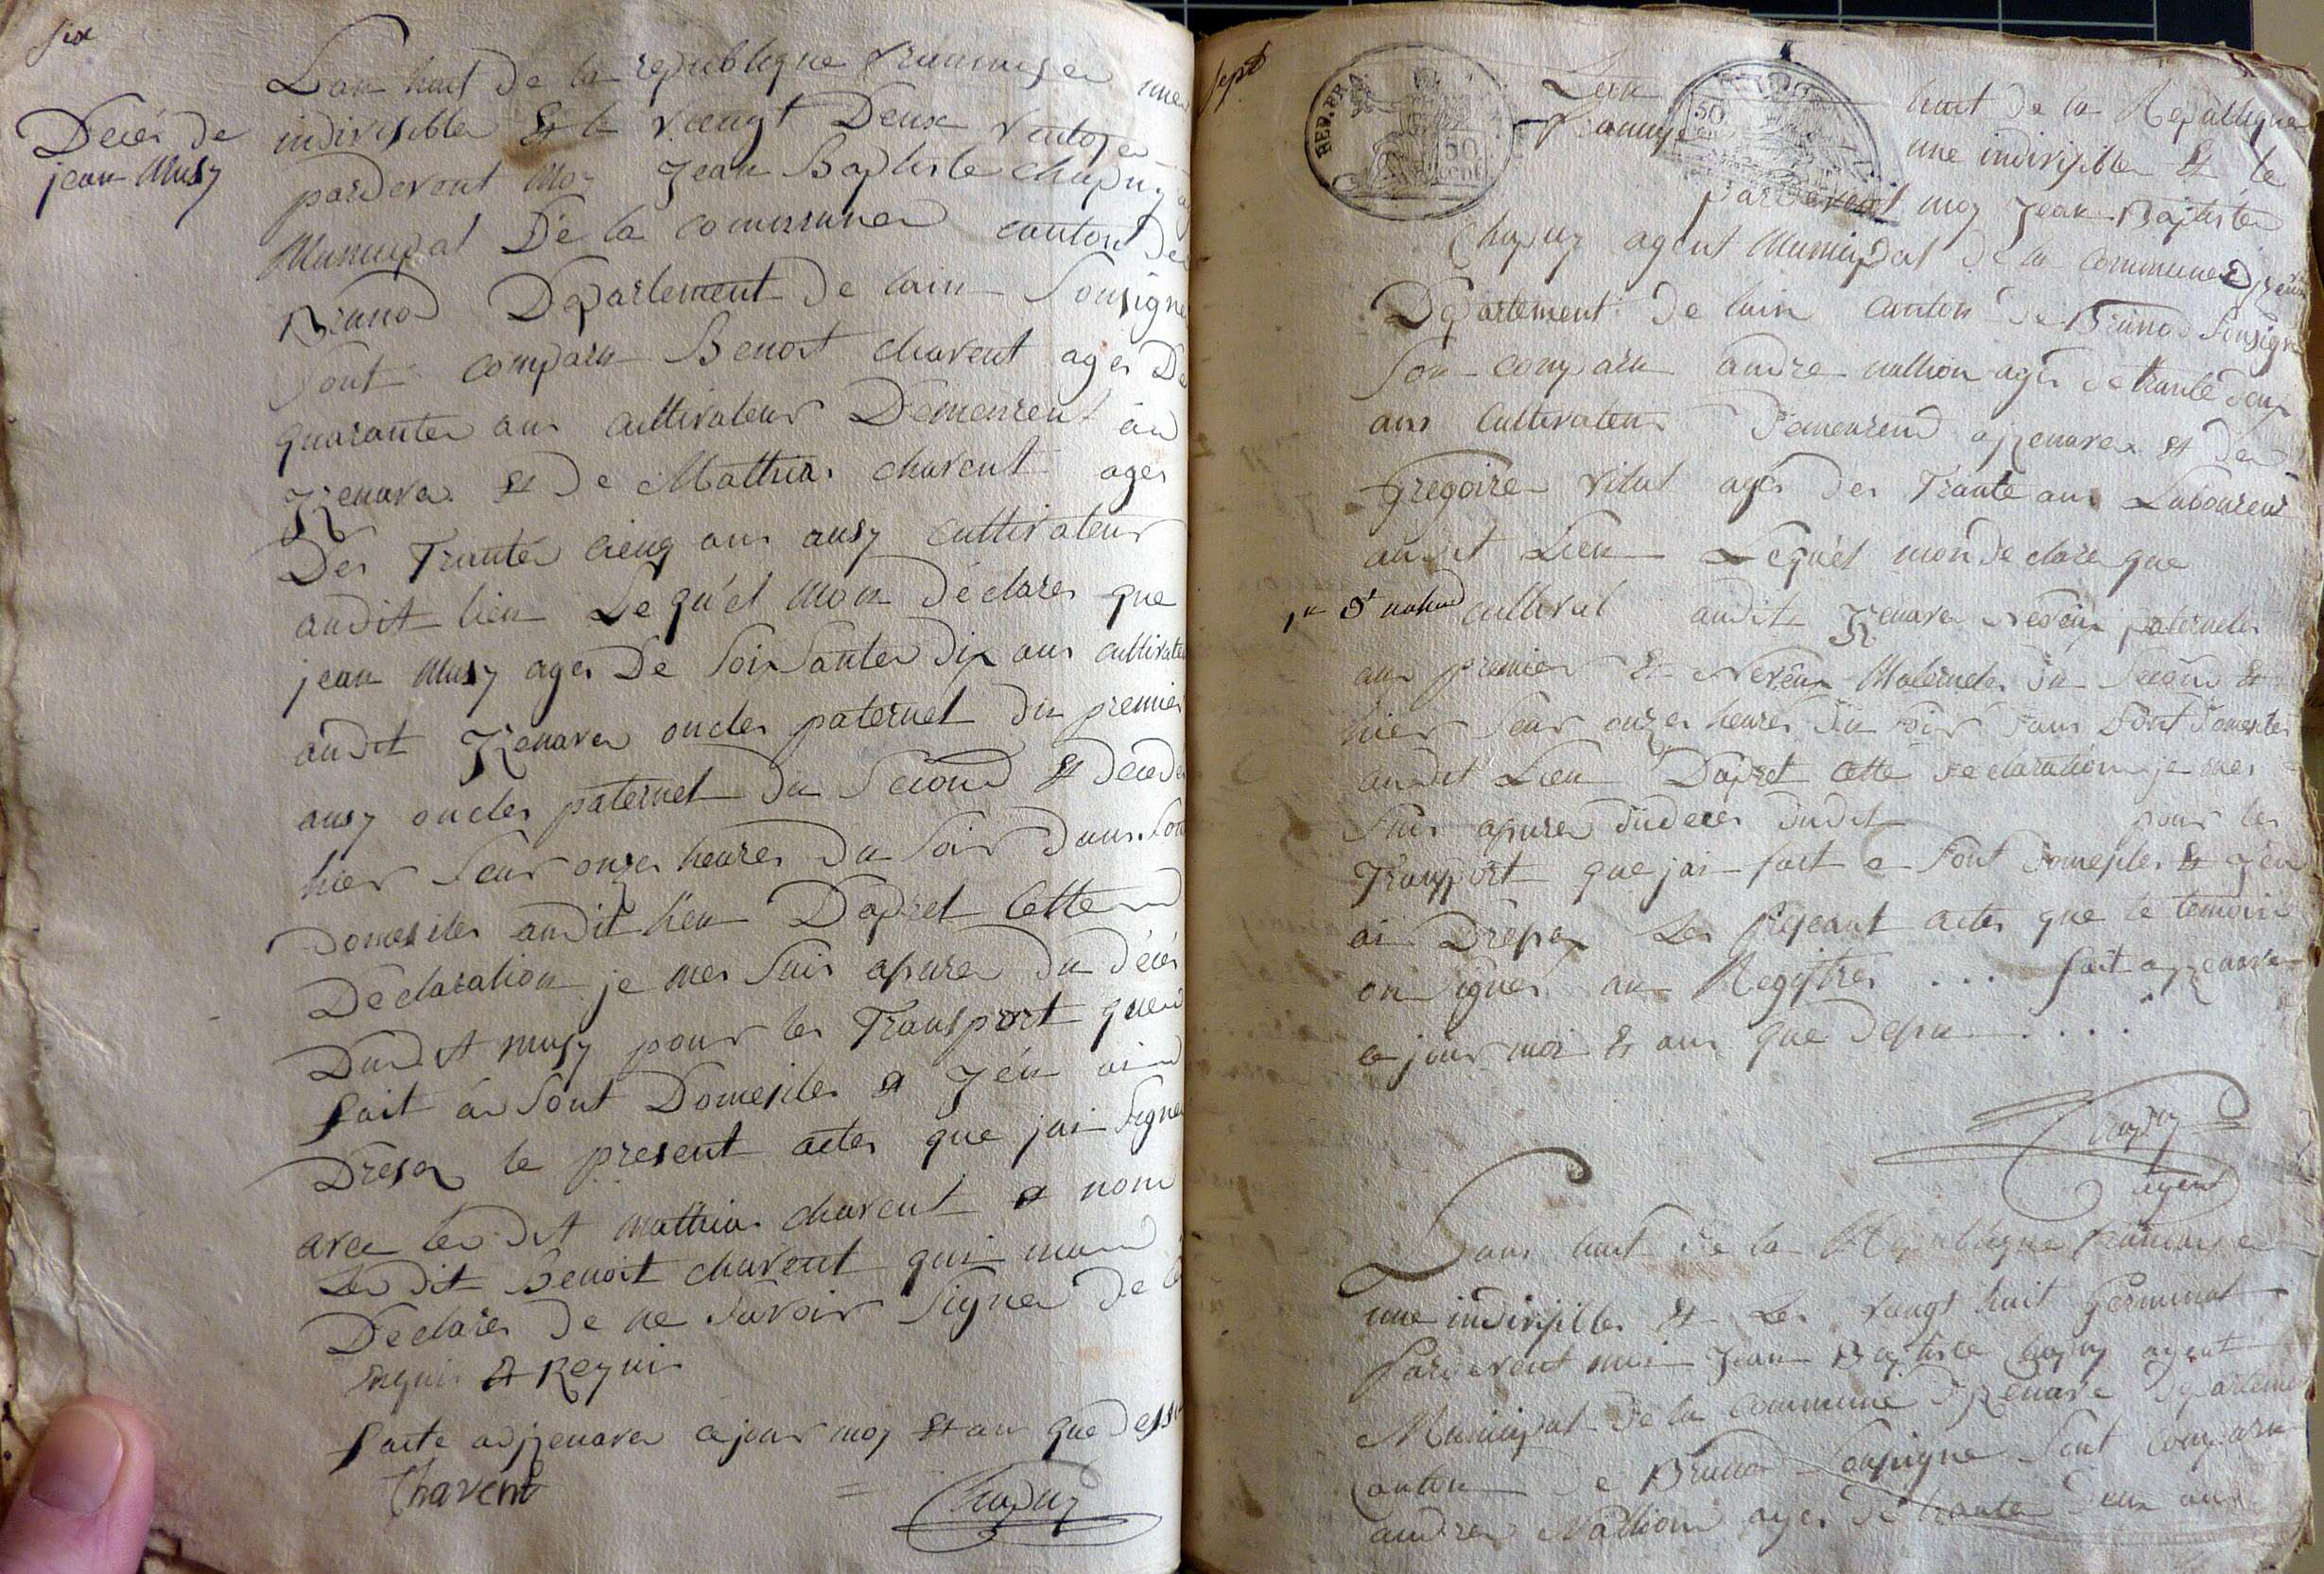 six
Decés de
jean Musy
Lan huit De la republique francaise une
indivisible Et le vengt Deux ventose
parDevent Moy Jean Baptiste Chapuy
Municipal De la commune canton De
Brunod Departement De lain Sousigne
Sont comparu Benoit charent ages De
quarante ans cultivateur Demeurent à
Izenave Et De Mathias charent ages
Des Trante cieng ans ausy cultivateur
audit lieu Le qu'el mon Déclares que
jean Musy ages De Soixsante Dix ans cultivate
audit Izenave oncles paternel du premier
ausy oncles paternel Du Second Et Décédé
hier Seur onzes heures Du Soir Dans Son
Domesiles audit lieu Dapret Cette
Declaration je mes Suis apures Du Décés
Dudit musy pour les Transport que
fait à Sont Domesiles Et J'én ai
Dresa le present actes que jai Signe
avec le dit Mathias charent et non
Le dit Benoit charent qui mon
Declares De ne Savoir Signer De ce
enquis Et Requis
faite adizenave ce jour moy Et an que Dessu
Charent Chapuy
Sept
REP. FRA.
50 cent.
50
Lan huit De la Republique
francaise une indivisible Et le
pardevent moy Jean Baptiste
Chapuy agent Municipal De la commune Dizenave
Departement De lain canton De Brunod Sousigne
Son comparu andre nallion ages De trante Deux
ans Cultivateur Demeurend a izenave Et De
Gregoire Vital ages Des Trante ans Laboureur
audit Lieu Lequel mon De clare que
cultivat audit Izenave Neveux paternelles
au premier Et Neveux Maternelles du Second Et
hier Seur onzes heures Du Soir Dans Sont Domesiles
audit Lieu Dapret Cette Declaration je mes
Suis apures du deces dudit pour les
Transport que jai fait a Sont Domesiles Et J'én
ai Drepas Les presant actes que le temoin
on Signes au Registres ... fait a izenave
ce jour moi Et ans que Depu ....
Chapuy
agent
Lans huit De la Republique francaise
une indivisibles Et Les vengt huit Germinal
Pardevent moi Jean Baptiste Chapuy agent
Municipal De la Commune Dizenave Departement
Canton De Brunod Sousigne Sont Comparu
andre Nallion ages De trante Deux ans